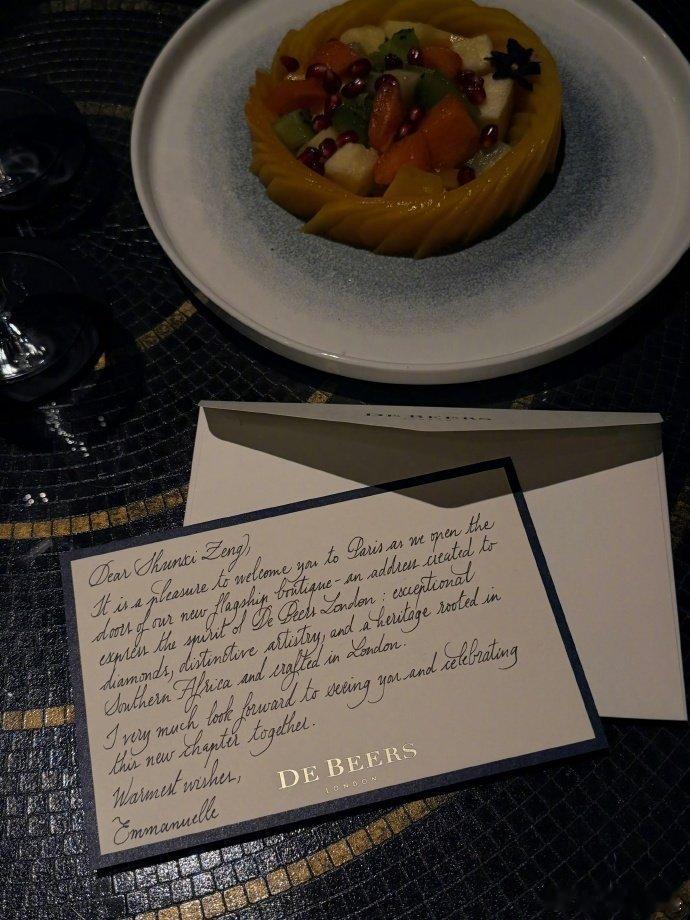 DE BEERS
Dear Shunxi Zeng,
It is a pleasure to welcome you to Paris as we open the
doors of our new flagship boutique - an address created to
express the spirit of De Beers London : exceptional
diamonds, distinctive artistry, and a heritage rooted in
Southern Africa and crafted in London.
I very much look forward to seeing you and celebrating
this new chapter together.
Warmest wishes,
Emmanuelle
DE BEERS
LONDON